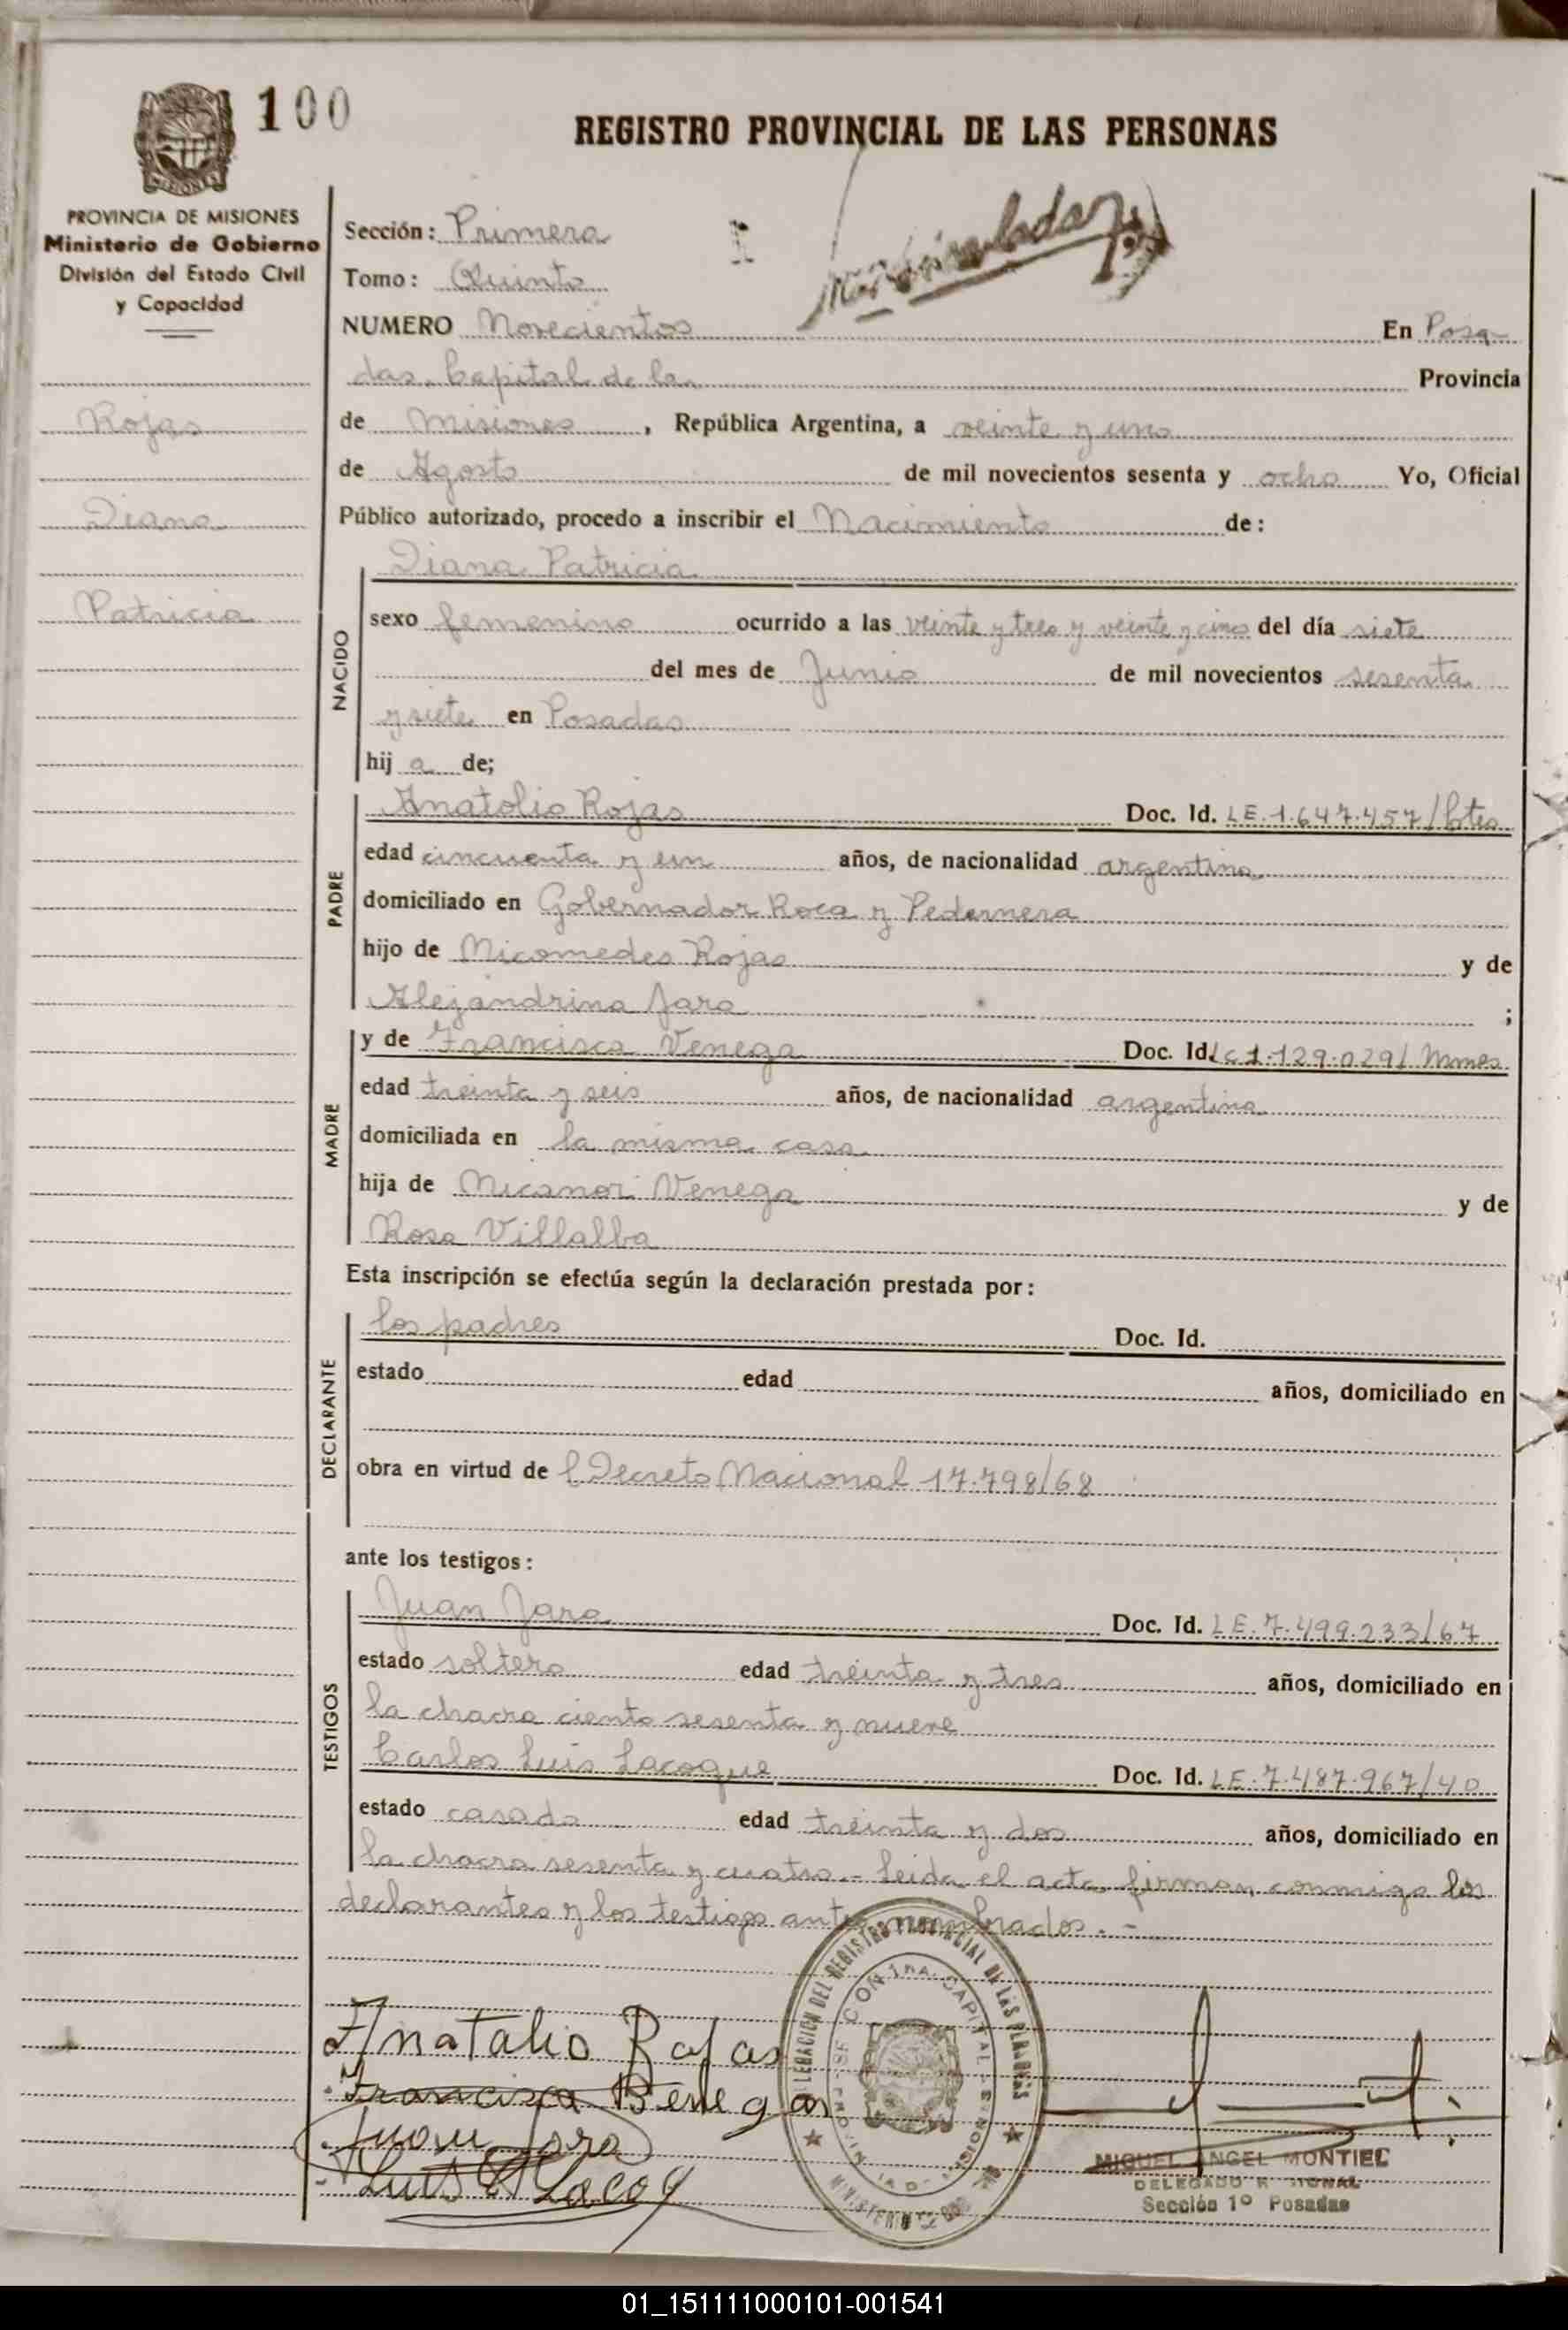 100
REGISTRO PROVINCIAL DE LAS PERSONAS
PROVINCIA DE MISIONES
Ministerio de Gobierno
División del Estado Civil
y Capacidad
Rojas
Diana
Patricia
Sección: Primera
Tomo: Quinto
NUMERO Novecientos En Posa-
das. Capital de la Provincia
de Misiones, República Argentina, a veinte y uno
de Agosto de mil novecientos sesenta y ocho Yo, Oficial
Público autorizado, procedo a inscribir el Nacimiento de:
NACIDO
Diana Patricia
sexo femenino ocurrido a las veinte y tres y veinte y cinco del día siete
del mes de Junio de mil novecientos sesenta
y siete en Posadas
hij a de;
PADRE
Anatolio Rojas Doc. Id. LE.1.647.457/Ctes
edad cincuenta y un años, de nacionalidad argentina
domiciliado en Gobernador Roca y Pedernera
hijo de Nicomedes Rojas y de
Alejandrina Jara ;
MADRE
y de Francisca Venega Doc. Id. LC 1.129.029/ Mnes
edad treinta y seis años, de nacionalidad argentina
domiciliada en la misma casa
hija de Nicanor Venega y de
Rosa Villalba
Esta inscripción se efectúa según la declaración prestada por:
DECLARANTE
los padres Doc. Id.
estado edad años, domiciliado en
obra en virtud de l Decreto Nacional 17.798/68
ante los testigos:
TESTIGOS
Juan Jara Doc. Id. LE.7.499.233/67
estado soltero edad treinta y tres años, domiciliado en
la chacra ciento sesenta y nueve
Carlos Luis Lacoque Doc. Id. LE.7.487.967/40
estado casado edad treinta y dos años, domiciliado en
la chacra sesenta y cuatro.- Leida el acta firman conmigo los
declarantes y los testigos antes nombrados.-
Anatalio Rojas
Francisca Benegas
Juan Jara
Luis Lacoq
MIGUEL ANGEL MONTIEL
DELEGADO
Sección 1º Posadas
01_151111000101-001541